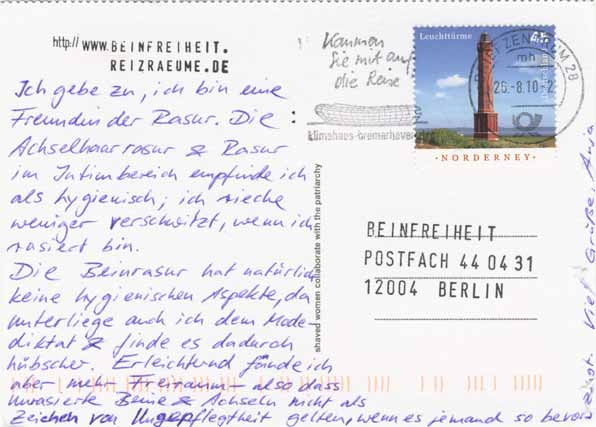 http:// www.BEINFREIHEIT.
REIZRAEUME.DE
Ich gebe zu, ich bin eine
Freundin der Rasur. Die
Achselhaarrasur & Rasur
im Intimbereich empfinde ich
als hygienisch; ich rieche
weniger verschwitzt, wenn ich
rasiert bin.
Die Beinrasur hat natürlich
keine hygienischen Aspekte, da
unterliege auch ich dem Mode-
diktat & finde es dadurch
hübscher. Erleichternd fände ich
aber mehr Freiraum – also dass
unrasierte Beine & Achseln nicht als
Zeichen von Ungepflegtheit gelten, wenn es jemand so bevor
zugt. Viele Grüße, Anja
shaved women collaborate with the patriarchy
Kommen
Sie mit auf
die Reise
klimahaus-bremerhaven
Leuchttürme
45
NORDERNEY
BRIEFZENTRUM 28
mh
26.-8.10-2
BEINFREIHEIT
POSTFACH 44 04 31
12004 BERLIN